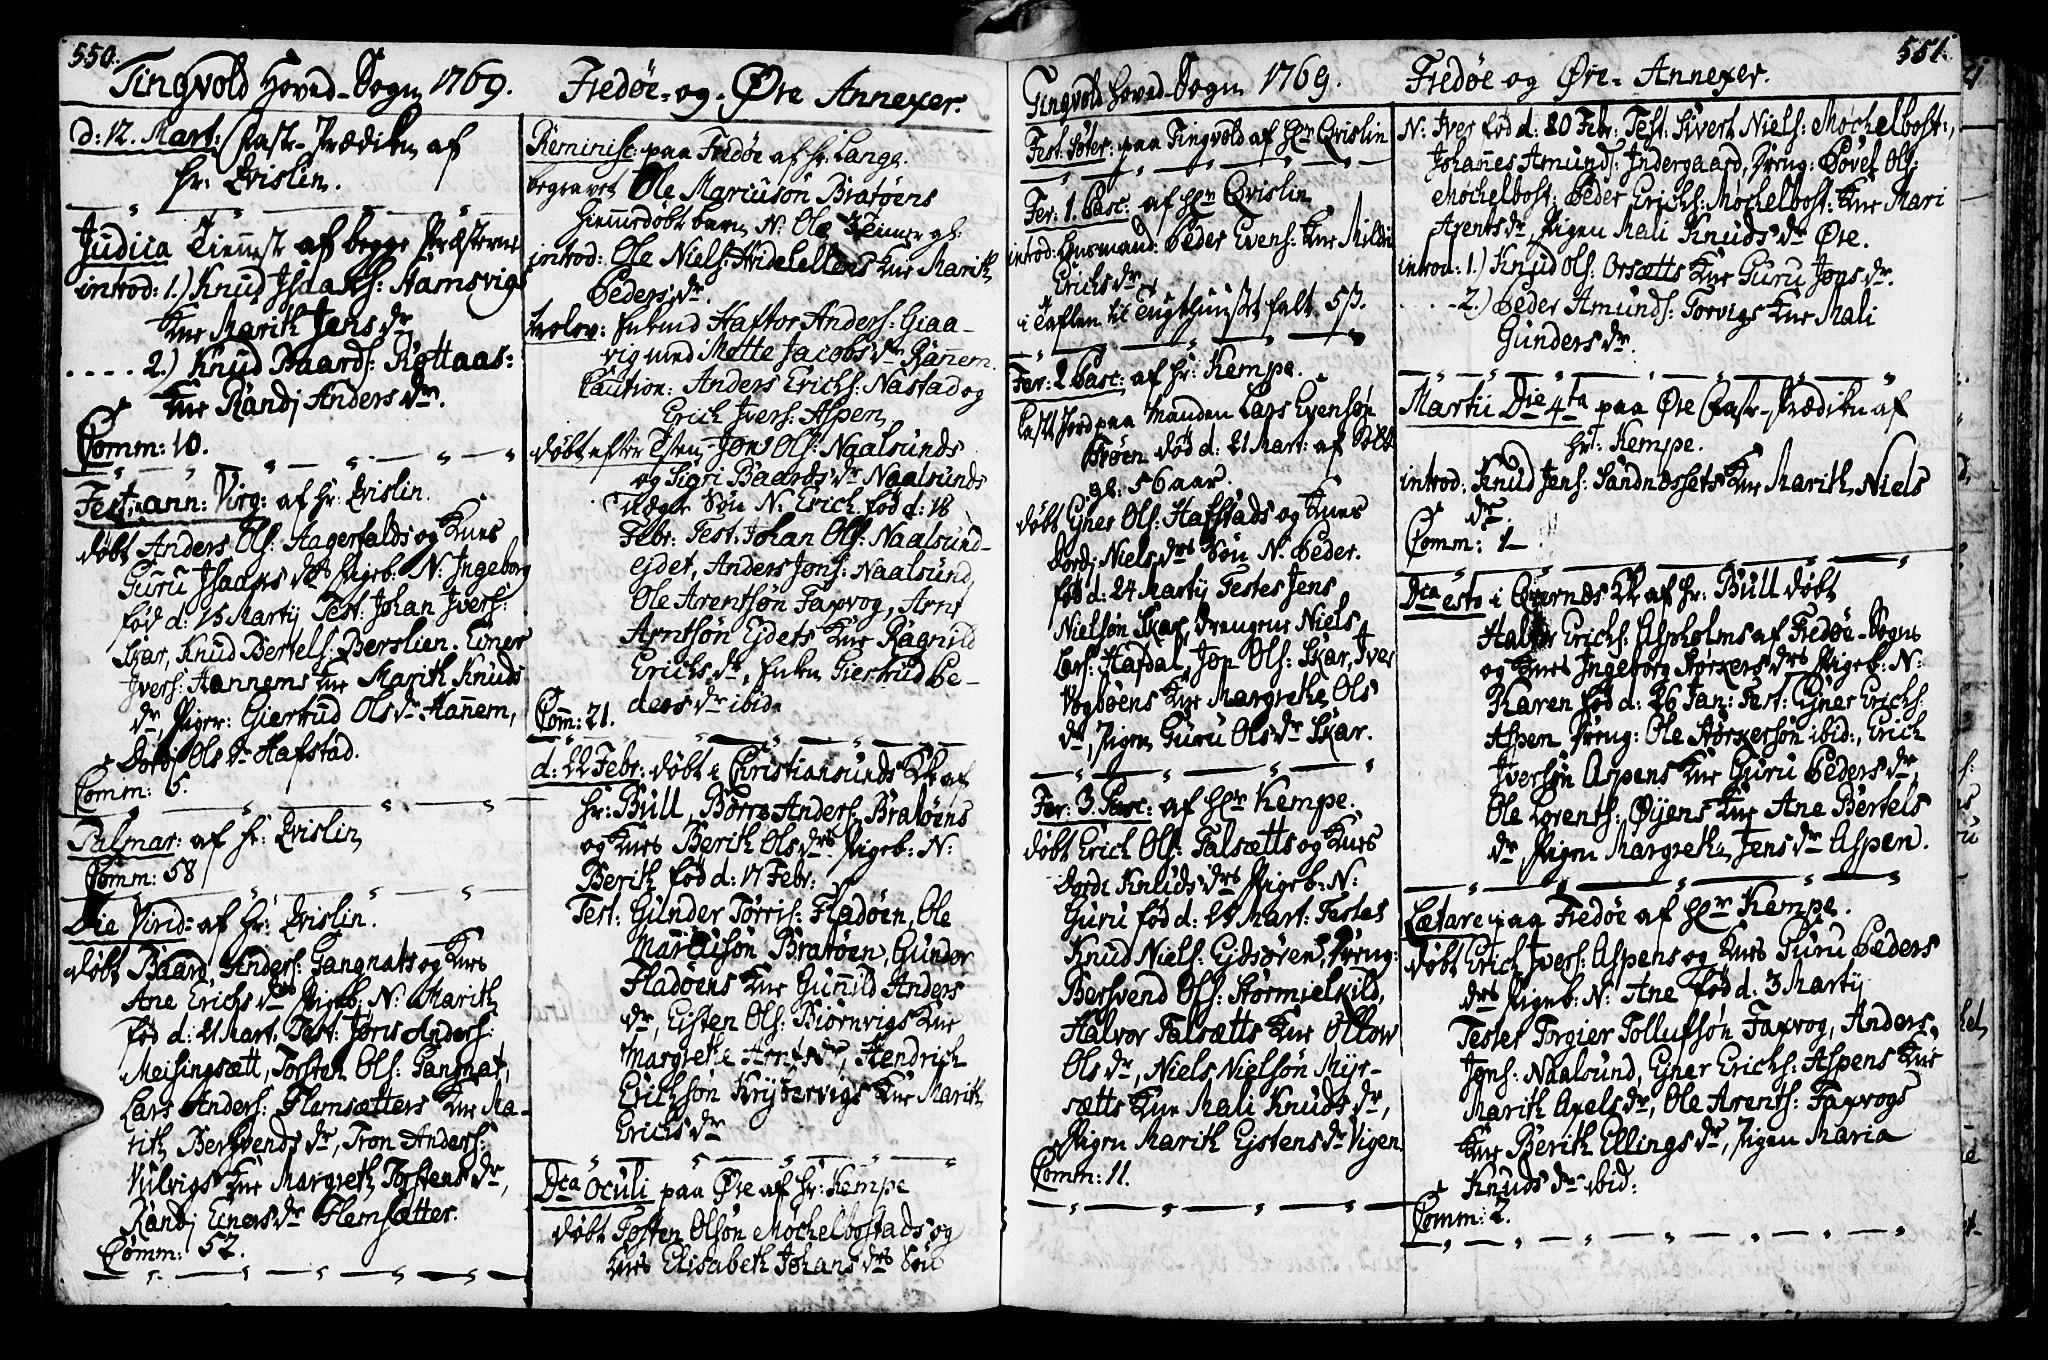 550.
Tingvold Hoved-Sogn 1769.
d: 12. Mart: Fast-Prædiken af
Hr: Qvislin.
Judica Tienneste af begge Præsterne
introd: 1.) Knud Isaachs: Hamsvigs
Kne Marith Jens dr
.... 2.) Knud Baards: Rottaas:
Kne Randj Anders dr.
Comm: 10.
Fest: ann: Virg: af Hr: Qvislin.
døbt Anders Ols: Aagersalds og Knes
Guru Isaachs drs Pigeb: N: Ingeborg
fød d: 15 Martij Test: Johan Ivers:
Skar, Knud Bertels: Berslien. Einer
Ivers: Hannems Kne Marith Knuds
dr, Piger: Giertrud Ols dr Hannem,
Dordj Ols dr Hafstad.
Comm: 5.
Palmar: af Hr: Qvislin
Comm: 58
Die Virid: af Hr: Qvislin.
døbt Baard Anders: Gangnats og Knes
Ane Erichs drs Pigeb: N: Marith
fød d: 21 Mart. Test: Jøris Anders:
Meisingsætt, Torsten Ols: Gangnat,
Lars Anders: Flemsætters Kne Ma-
rith Bersvends dr, Tron Anders:
Vulvigs Kne Margreth Torstens dr,
Randj Einers dr Flemsætter.
Comm: 52.
Fredøe-og-Øre Annexer.
Reminisc: paa Fredøe af Hr: Lange.
begravet Ole Mariusøn Bratøens
hiemmedøbt barn N: Ole 3 Timer gl:
introd: Ole Niels: Hvidehellens Kne Marith
Peders dr.
trolov: Enkemd Haftor Anders: Giaa-
vig med Mette Jacobs dr Rannem.
Caution: Anders Erichs: Nastad og
Erich Ivers: Aspen
døbt efter Tfen Jon Ols: Naalsunds
og Sigri Baards dr Naalsunds
uægte Søn N: Erich fød d: 18
Febr: Test: Johan Ols: Naalsund-
ejdet, Anders Jons: Naalsund,
Ole Arentsøn Faxvog, Arnt
Arntsøn Ejdets Kne Ragnild
Erichs dr, Enken Giertrud Pe-
ders dr ibid.
Comm: 21.
d: 22 Febr: døbt i Christiansunds Kk af
Hr: Bull, Børre Anders: Bratøens
og Knes Berith Ols drs Pigeb: N:
Berith fød d: 17 Febr:
Test: Gunder Tørris: Fladøen, Ole
Mariusøn Bratøen, Gunder
Fladøens Kne Gunnild Anders
dr, Eisten Ols: Biørnvigs Kne
Margrethe Arnts dr, Hendrich
Erichsøn Krytervigs Kne Marith
Erichs dr
Dca Oculi paa Øre af Hr: Kempe
døbt Tosten Olsøn Mochelbostads og
Knes Elisabeth Johans drs Søn
Tingvold Hoved-Sogn 1769.
Fest: Pater: paa Tingvold af Hr Qvislin
Fer: 1. Pasc: af Hr Qvislin
introd: Huusmand: Peder Evens: Kne Mildri
Erichs dr
i Taflen til Tugthuuset falt 5 β.
Fer: 2 Pasc: af Hr: Kempe.
Castt Jord paa Manden Lars Evensøn
Brøen død d: 21 Mart: af Sott
gl: 56 aar.
døbt Ejner Ols: Hafstads og Knes
Dordj Niels drs Søn N: Peder.
fød d: 24 Martij Testes Jens
Nielsøn Skar, Drengene Niels
Lars: Hafdal, Jon Ols: Skar, Iver
Vogbøens Kne Margrethe Ols
dr, Pigen Guru Ols dr Skar.
Fer: 3 Pasc: af Hr Kempe.
døbt Erich Ols: Falsætts og Knes
Dordi Knuds drs Pigeb: N:
Guru fød d: 24 Mart: Testes
Knud Niels: Ejdsøren, Dreng:
Bersvend Ols: Stormielkild,
Halvor Falsætts Kne Ollow
Ols dr, Niels Nielsøn Myr-
sætts Kne Mali Knuds dr,
Pigen Marith Ejstens dr Vigen
Comm: 11.
551.
Fredøe og Øre-Annexer.
N: Iver fød d: 20 Febr: Test: Sivert Niels: Møchelbost:,
Johannes Amunds: Indergaard, Dreng: Povel Ols:
Møchelbost: Peder Erichs: Møchelbost: Kne Mari
Arents dr, Pigen Mali Knuds dr Øre.
introd: 1.) Knud Ols: Orsætts Kne Guru Jons dr.
.... 2.) Peder Amunds: Torvigs Kne Mali
Gunders dr.
Martii Die 4ta paa Øre Fast-Prædiken af
Hr: Kempe.
introd: Knud Jens: Sandnæssets Kne Marith Niels
dr.
Comm: 1-
Dca esto i Qvernæs Kk af Hr: Bull døbt
Halvor Erichs: Aspholms af Fredøe-Sogns
og Knes Ingeborg Størkers drs Pigeb: N:
Karen fød d: 26 Jan: Test: Ejner Erichs:
Aspen Dreng: Ole Størkersøn ibid:, Erich
Iversøn Aspens Kne Guru Peders dr,
Ole Lorents: Øyens Kne Ane Bertels
dr, Pigen Margrethe Jens dr Aspen.
Lætare paa Fredøe af Hr Kempe.
døbt Erich Ivers: Aspens og Knes Guru Peders
drs Pigeb: N: Ane fød d: 3 Martij
Testes Torgier Tollufsøn Faxvog, Anders
Jons: Naalsund, Ejner Erichs: Aspens Kne
Marith Axels dr, Ole Arents: Faxvogs
Kne Berith Ellings dr, Pigen Maria
Knuds dr ibid:
Comm: 2.